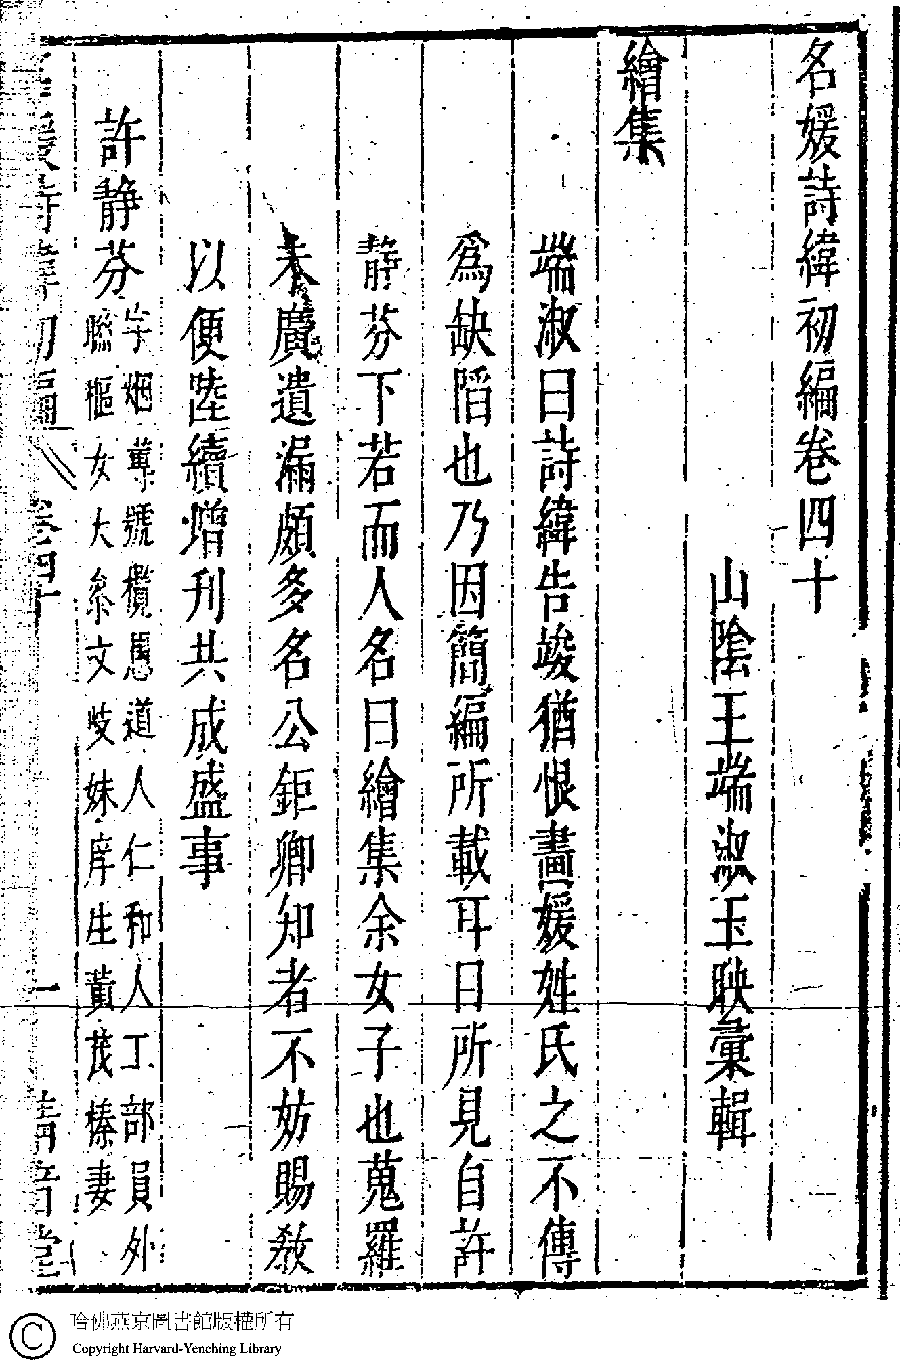 名媛詩緯初編卷四十
山陰王端淑玉映彙輯
繪集
端淑曰詩緯告竣猶恨畫媛姓氏之不傳
爲缺陷也乃因簡編所載耳目所見自許
靜芬下若而人名曰繪集余女子也蒐羅
未廣遺漏頗多名公鉅卿知者不妨賜敎
以便陸續增刊共成盛事
許靜芬字烟蕚號欖愚道人仁和人工部員外
聯樞女大參文岐妹庠生黃茂榛妻
名媛詩緯初編 卷四十 一 清音堂
哈佛燕京圖書館版權所有
Copyright Harvard-Yenching Library